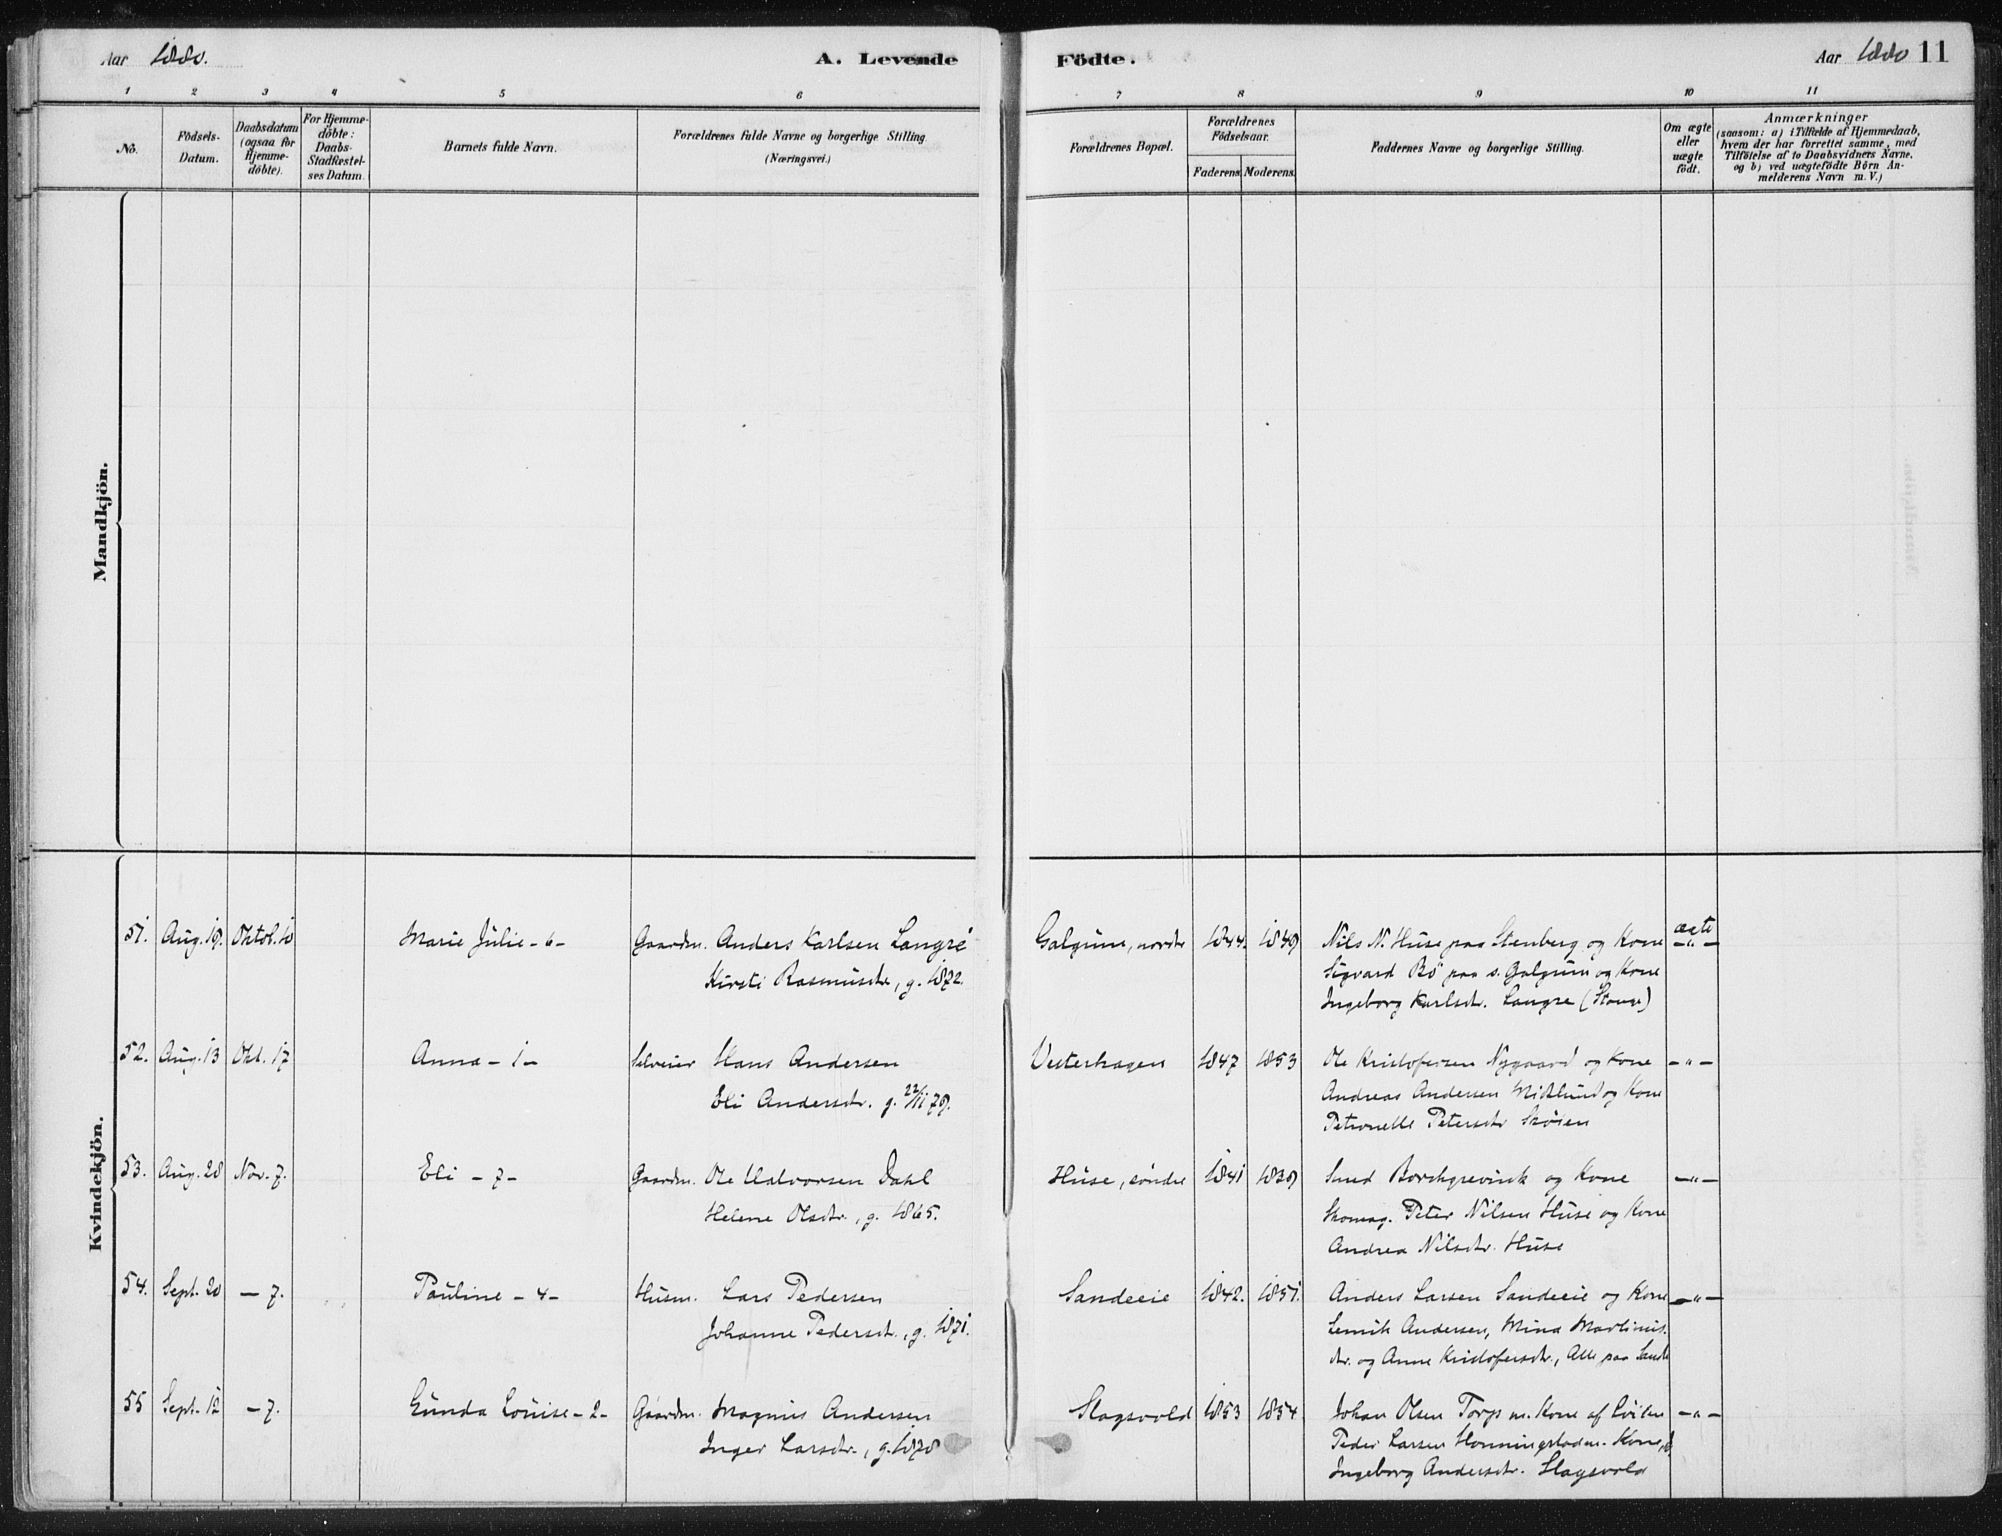 Aar 1880.
A. Levende Födte.
Aar 1880 11
1 2 3 4 5 6 7 8 9 10 11
No.
Födsels-
Datum.
Daabsdatum
(ogsaa for
Hjemme-
döbte).
For Hjemme-
döbte:
Daabs-
Stadfestel-
ses Datum.
Barnets fulde Navn.
Forældrenes fulde Navne og borgerlige Stilling
(Næringsvei.)
Forældrenes Bopæl.
Forældrenes
Födselsaar.
Faderens. Moderens.
Faddernes Navne og borgerlige Stilling.
Om ægte
eller
uægte
födt.
Anmærkninger
(saasom: a) i Tilfælde af Hjemmedaab,
hvem der har forrettet samme, med
Tilföielse af to Daabsvidners Navne.
og b) ved uægtefödte Börn An-
melderens Navn m. V.)
Mandkjön.
Kvindekjön.
51. Aug. 19. Oktob. 10 Marie Julie - 6 - Gaardm. Anders Karlsen Langre Galgum, nordre 1844. 1849 Nils N. Huse paa Stenberg og Kone ægte
Kirsti Rasmusdtr, g. 1872. Sigvard Bö paa s. Galgum og Kone - " -
Ingeborg Karlsdtr. Langre (Stange)
52. Aug. 13 Okt. 17 Anna - 1 - Selveier Hans Andersen Vesterhagen 1847 1853 Ole Kristofersen Nygaard og Kone - " -
Eli Andersdtr. g. 22/11 79. Andreas Andersen Midtlund og Kone
Petronelle Petersdtr Skøien
53. Aug. 28 Nov. 7. Eli - 7 - Gaardm. Ole Halvorsen Dahl Huse, søndre 1841 1839 Smed Borchgrevinck og Kone - " -
Helene Olsdtr., g. 1865. Skomag. Peter Nilsen Huse og Kone
Andrea Nilsdtr. Huse
54. Sept. 20 - 7. Pauline - 4 - Husm. Lars Pedersen Sandeeie 1842. 1851. Anders Larsen Sandeeie og Kone - " -
Johanne Pedersdt., g. 1871. Lenik Andersen, Mina Martinus-
dtr. og Anne Kristofersdtr., Alle paa Sande
55 Sept. 12 - 7. Gunda Louise - 2 - Gaardm. Magnus Andersen Slagsvold 1853 1854. Johan Olsen Torp m. Kone af Löiten - " -
Inger Larsdtr., g. 1878 Peder Larsen Honningstad m. Kone,
Ingeborg Andersdtr. Slagsvold